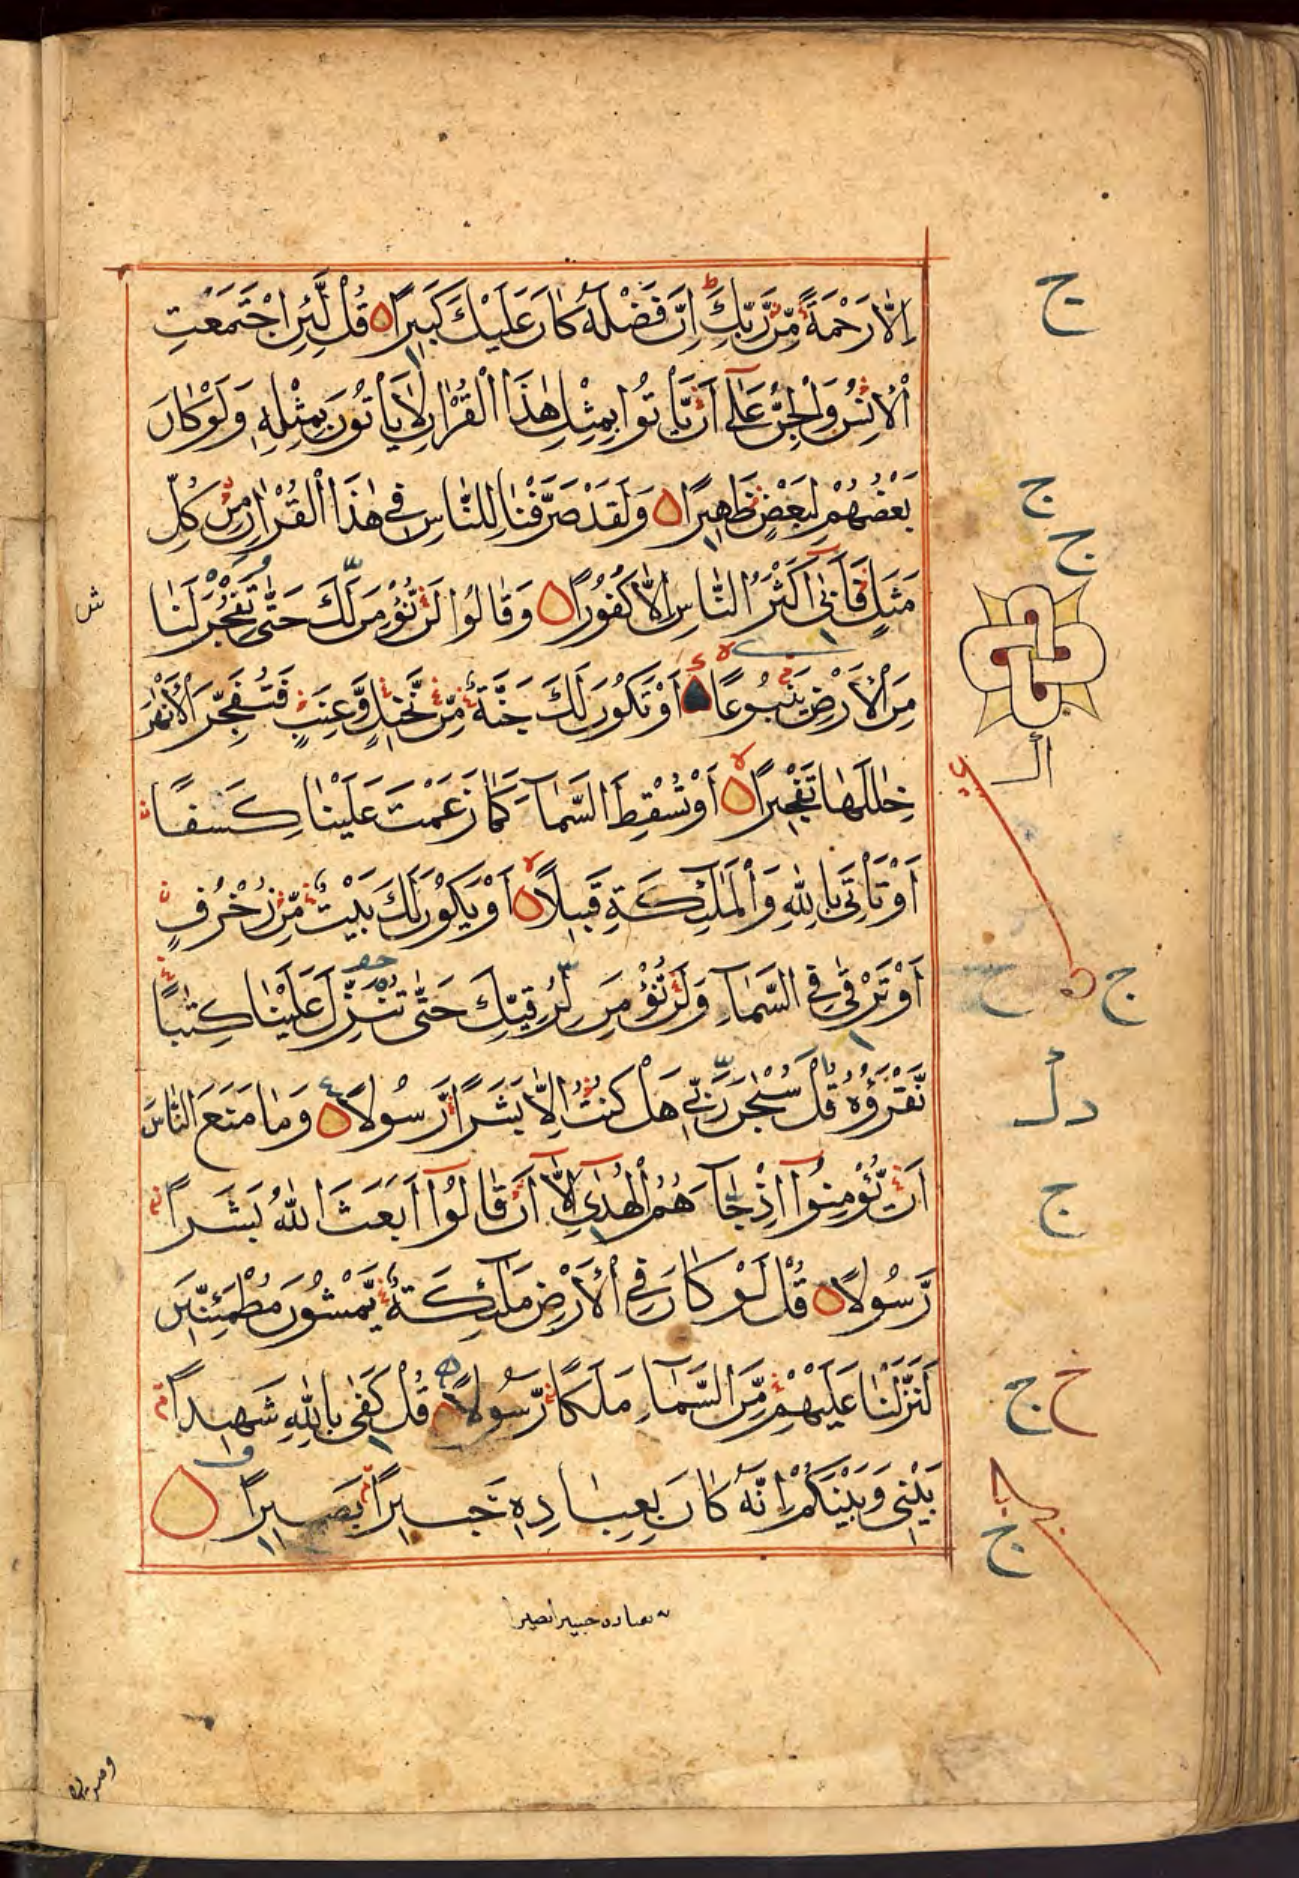 اِلَّا رَحْمَةً مِّنْ رَّبِّكَ اِنَّ فَضْلَهٗ كَانَ عَلَيْكَ كَبِيْرًا قُلْ لَّئِنِ اجْتَمَعَتِ
الْاِنْسُ وَالْجِنُّ عَلٰٓى اَنْ يَّاْتُوْا بِمِثْلِ هٰذَا الْقُرْاٰنِ لَا يَاْتُوْنَ بِمِثْلِهٖ وَلَوْ كَانَ
بَعْضُهُمْ لِبَعْضٍ ظَهِيْرًا وَلَقَدْ صَرَّفْنَا لِلنَّاسِ فِيْ هٰذَا الْقُرْاٰنِ مِنْ كُلِّ
مَثَلٍ فَاَبٰٓى اَكْثَرُ النَّاسِ اِلَّا كُفُوْرًا وَقَالُوْا لَنْ نُّؤْمِنَ لَكَ حَتّٰى تَفْجُرَ لَنَا
مِنَ الْاَرْضِ يَنْبُوْعًا اَوْ تَكُوْنَ لَكَ جَنَّةٌ مِّنْ نَّخِيْلٍ وَّعِنَبٍ فَتُفَجِّرَ الْاَنْهٰرَ
خِلٰلَهَا تَفْجِيْرًا اَوْ تُسْقِطَ السَّمَآءَ كَمَا زَعَمْتَ عَلَيْنَا كِسَفًا
اَوْ تَاْتِيَ بِاللّٰهِ وَالْمَلٰٓئِكَةِ قَبِيْلًا اَوْ يَكُوْنَ لَكَ بَيْتٌ مِّنْ زُخْرُفٍ
اَوْ تَرْقٰى فِي السَّمَآءِ وَلَنْ نُّؤْمِنَ لِرُقِيِّكَ حَتّٰى تُنَزِّلَ عَلَيْنَا كِتٰبًا
نَّقْرَؤُهٗ قُلْ سُبْحٰنَ رَبِّيْ هَلْ كُنْتُ اِلَّا بَشَرًا رَّسُوْلًا وَمَا مَنَعَ النَّاسَ
اَنْ يُّؤْمِنُوْٓا اِذْ جَآءَهُمُ الْهُدٰٓى اِلَّآ اَنْ قَالُوْٓا اَبَعَثَ اللّٰهُ بَشَرًا
رَّسُوْلًا قُلْ لَوْ كَانَ فِي الْاَرْضِ مَلٰٓئِكَةٌ يَّمْشُوْنَ مُطْمَئِنِّيْنَ
لَنَزَّلْنَا عَلَيْهِمْ مِّنَ السَّمَآءِ مَلَكًا رَّسُوْلًا قُلْ كَفٰى بِاللّٰهِ شَهِيْدًا
بَيْنِيْ وَبَيْنَكُمْ اِنَّهٗ كَانَ بِعِبَادِهٖ خَبِيْرًا بَصِيْرًا
ج
ج
ج
ج
ج
ج
ج
ش
بعباده خبيرا بصيرا